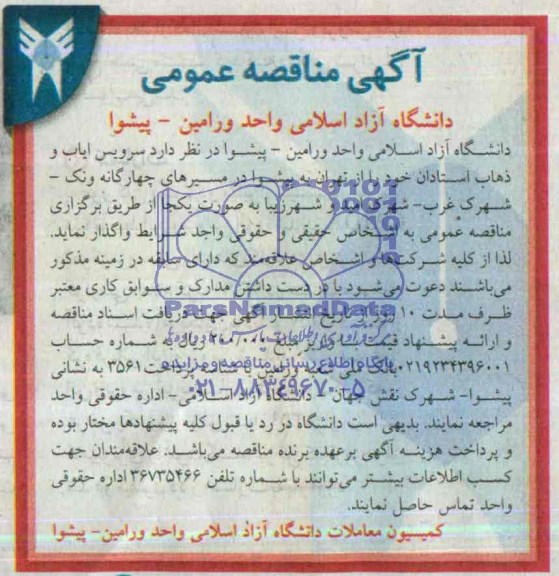 آگهی مناقصه عمومی
دانشگاه آزاد اسلامی واحد ورامین - پیشوا
دانشگاه آزاد اسلامی واحد ورامین - پیشوا در نظر دارد سرویس ایاب و
ذهاب استادان خود را از تهران به پیشوا در مسیرهای چهارگانه ونک -
شهرک غرب- شهرک امید و شهرزیبا به صورت یکجا از طریق برگزاری
مناقصه عمومی به اشخاص حقیقی و حقوقی واجد شرایط واگذار نماید.
لذا از کلیه شرکت‌ها و اشخاص علاقه‌مند که دارای سابقه در زمینه مذکور
می‌باشند دعوت می‌شود با در دست داشتن مدارک و سوابق کاری معتبر
ظرف مدت ۱۰ روز از تاریخ انتشار آگهی جهت دریافت اسناد مناقصه
و ارائه پیشنهاد قیمت مبلغ ریال به شماره حساب
۰۲۱۹۲۳۴۳۹۶۰۰۱ بانک ملی شعبه ورامین با شناسه پرداخت ۳۵۶۱ به نشانی
پیشوا- شهرک نقش جهان - دانشگاه آزاد اسلامی- اداره حقوقی واحد
مراجعه نمایند. بدیهی است دانشگاه در رد یا قبول کلیه پیشنهادها مختار بوده
و پرداخت هزینه آگهی برعهده برنده مناقصه می‌باشد. علاقه‌مندان جهت
کسب اطلاعات بیشتر می‌توانند با شماره تلفن ۳۶۷۳۵۴۶۶ اداره حقوقی
واحد تماس حاصل نمایند.
کمیسیون معاملات دانشگاه آزاد اسلامی واحد ورامین- پیشوا
ParsNamadData
پایگاه اطلاع رسانی مناقصه و مزایده
۰۲۱-۸۸۳۴۹۶۷۰-۵